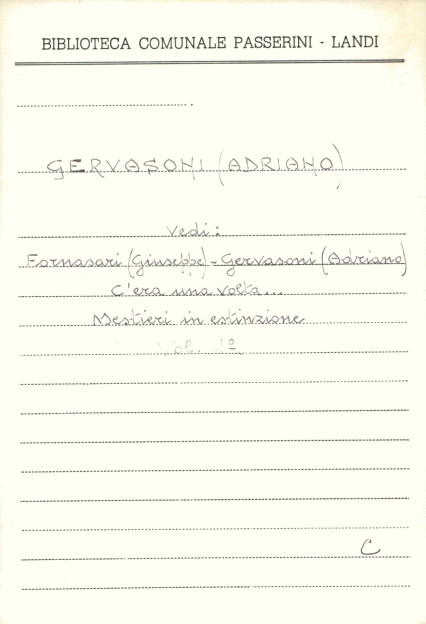 BIBLIOTECA COMUNALE PASSERINI - LANDI
GERVASONI (ADRIANO)
Vedi:
Fornasari (Giuseppe) - Gervasoni (Adriano)
C'era una volta...
Mestieri in estinzione
Vol. 1º
C